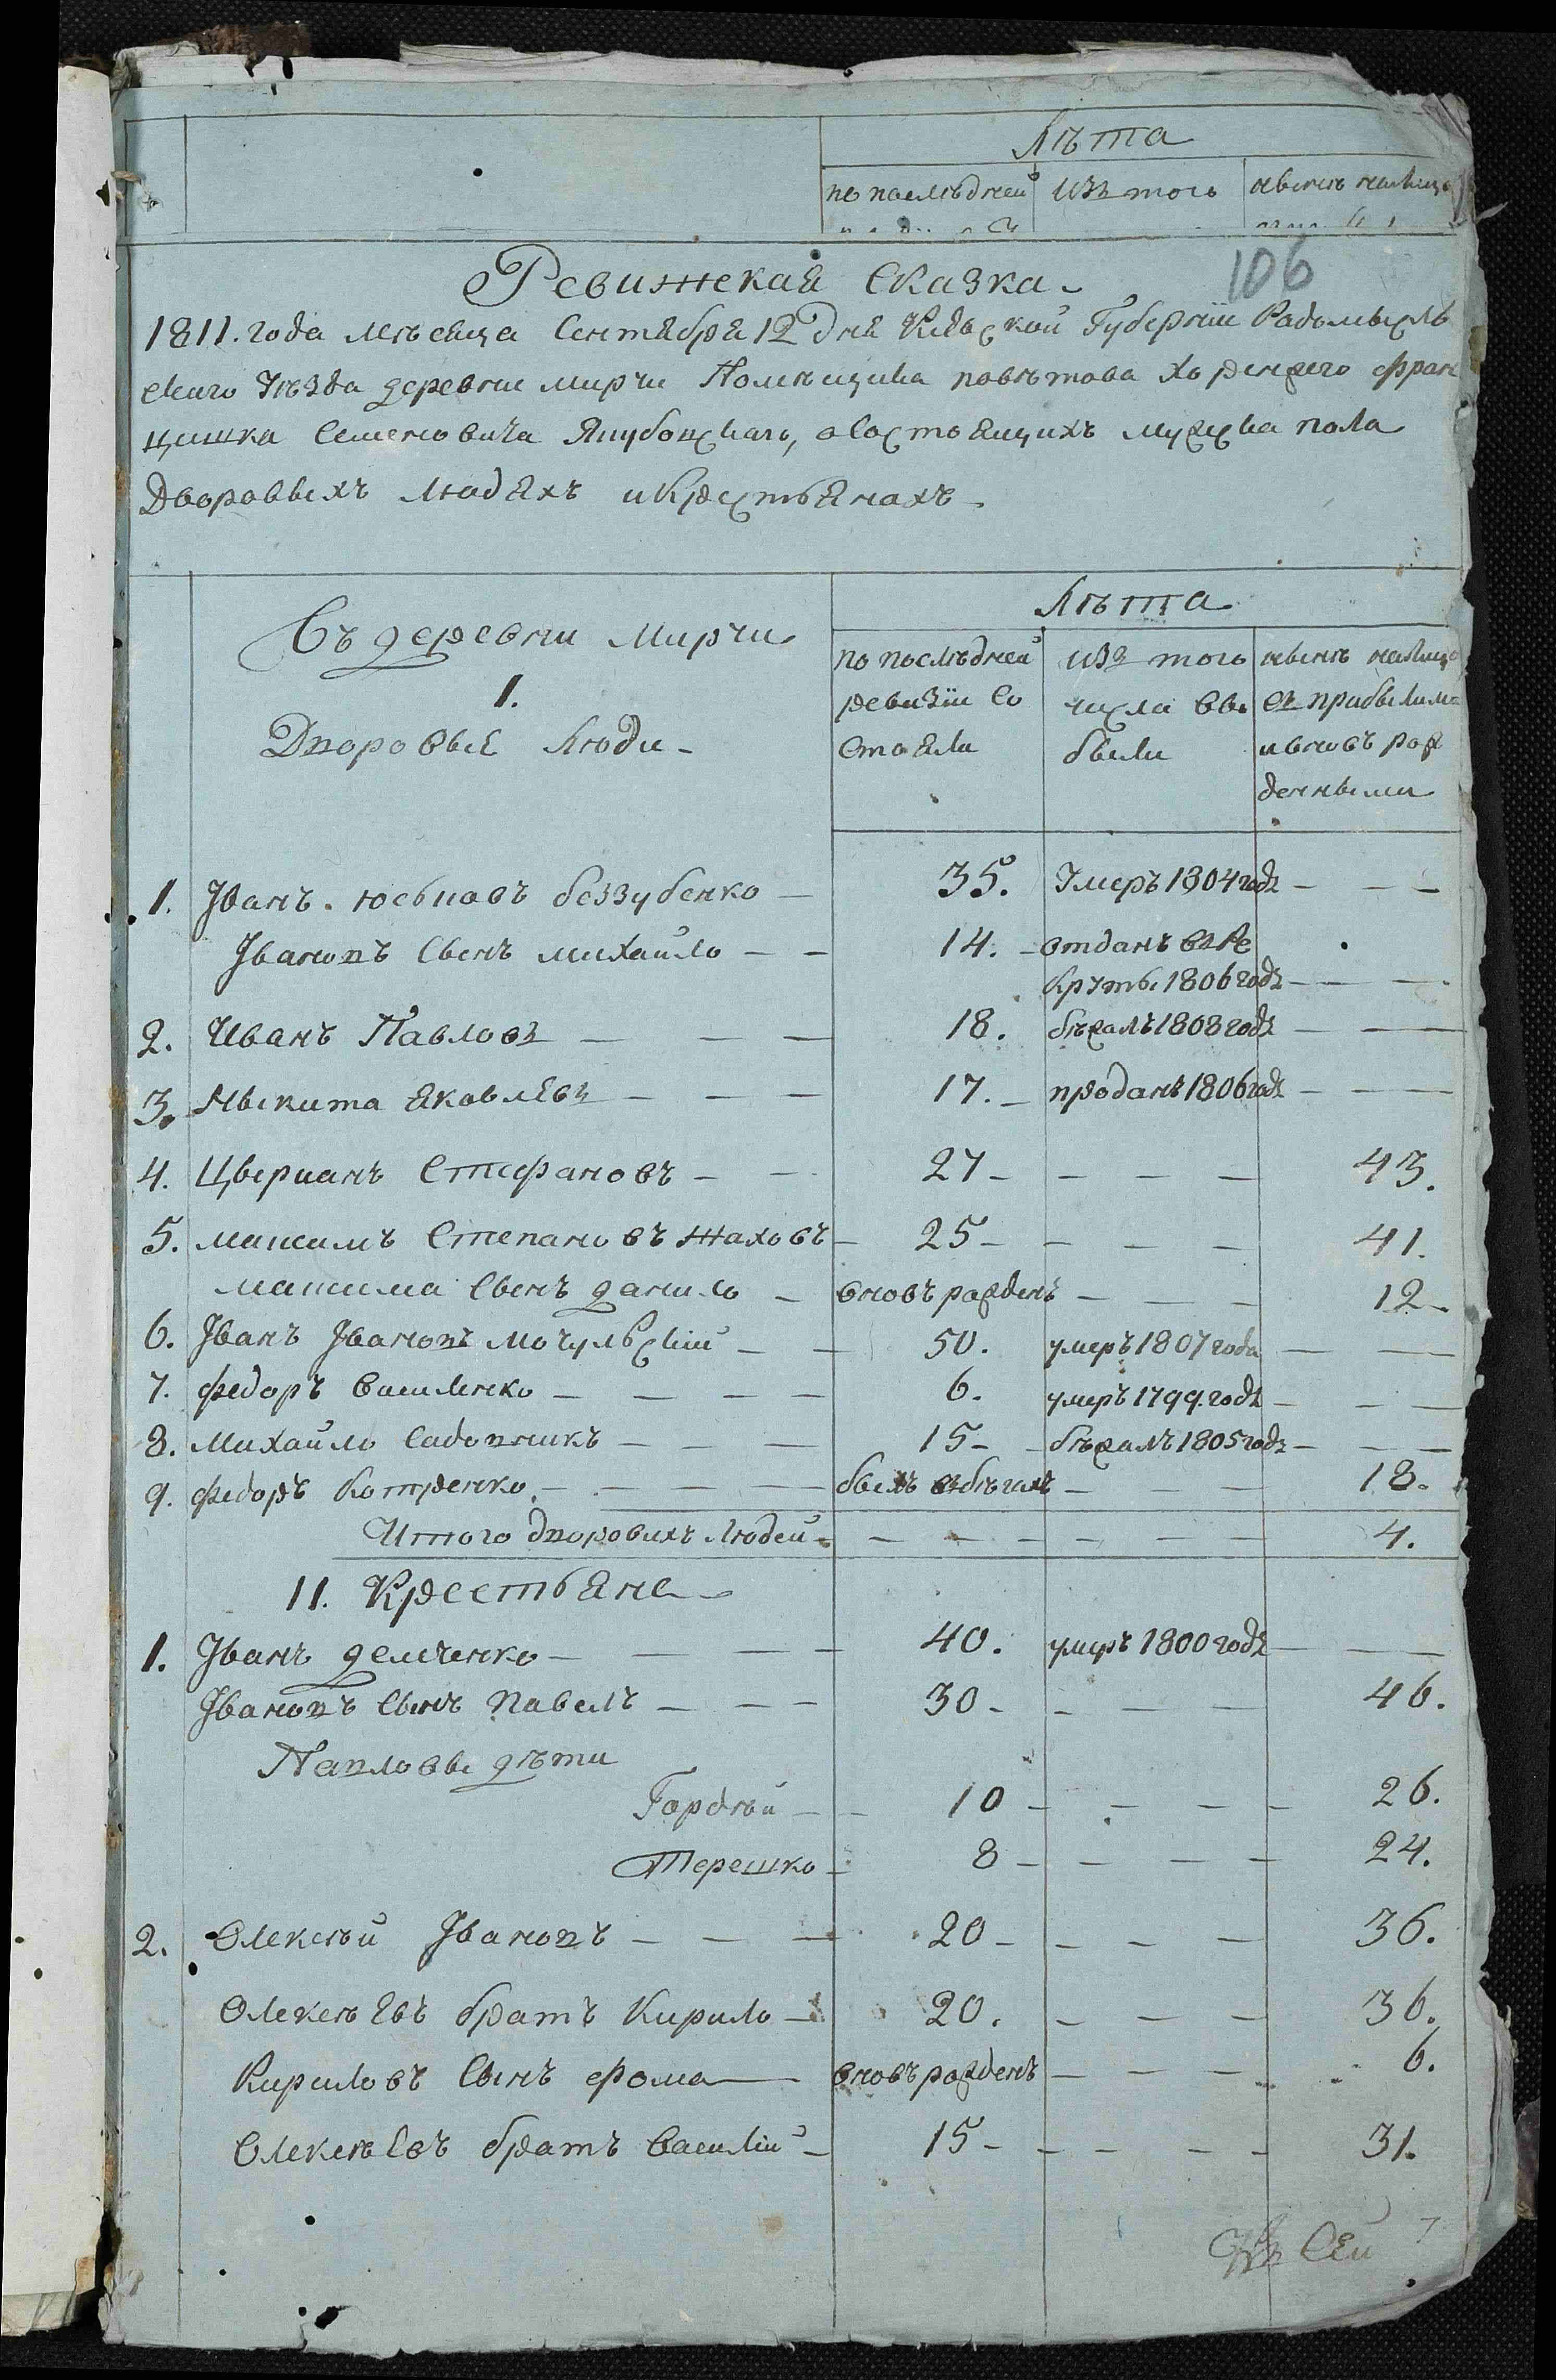 Лѣта
по послѣдней изъ того нынѣ налицо
106
Ревижская Сказка
1811. года мѣсяца Сентября 12 дня Кіевской Губерніи Радомысль
скаго Уѣзда деревни Мирчи Помѣщика повѣтова Хоренжего Фран
цишка Семеновича Якубовскаго, о состоящихъ мужска пола
Дворовыхъ людяхъ и Крестьянахъ
Лѣта
Съ деревни Мирчи
по послѣдней изъ того нынѣ налицо
1.
ревизіи со числа вы съ прибылими
Дворовые Люди
стояли были и вновь рож
денными
1. Іванъ беззубенко — 35. Умеръ 1804 годѣ — — —
Івановъ Сынъ михайло — — 14. — отданъ въ Ре
круты 1806 годѣ — — —
2. Иванъ Павловъ — — — 18. бѣжалъ 1808 годѣ — — —
3. Мыкита Яковлевъ — — — 17. — проданъ 1806 годѣ — — —
4. Цверианъ Стефановъ — — 27 — — — — 43.
5. максимъ Степановъ Жаховъ — 25 — — — — 41.
максима Сынъ данило — вновъ рожденъ — — — 12 —
6. Іванъ Івановъ Мочульскій — — 50. умеръ 1807 года — —
7. Федоръ василенко — — — — 6. умеръ 1799. годѣ — — —
8. Михайло Садовникъ — — — 15 — — бѣжалъ 1805 годѣ — — —
9. Федоръ Котренко — — — — былъ въ бѣгахъ — — — 18.
Итого дворовихъ людей — — — — — — — 4.
11. Крестьяне
1. Іванъ демченко — — — — 40. умеръ 1800 годѣ — —
Івановъ Сынъ Павелъ — — — 30 — — — — 46.
Павловы дѣти
Гордѣй — — 10 — — — — 26.
Терешко — 8 — — — — 24.
2. Олексѣй Івановъ — — — 20 — — — — 36.
Олексѣевъ братъ Кирило — 20. — — — 36.
Кириловъ Сынъ Фома — вновъ рожденъ — — — 6.
Олексѣевъ братъ Василій — 15 — — — — — 31.
Къ Сей